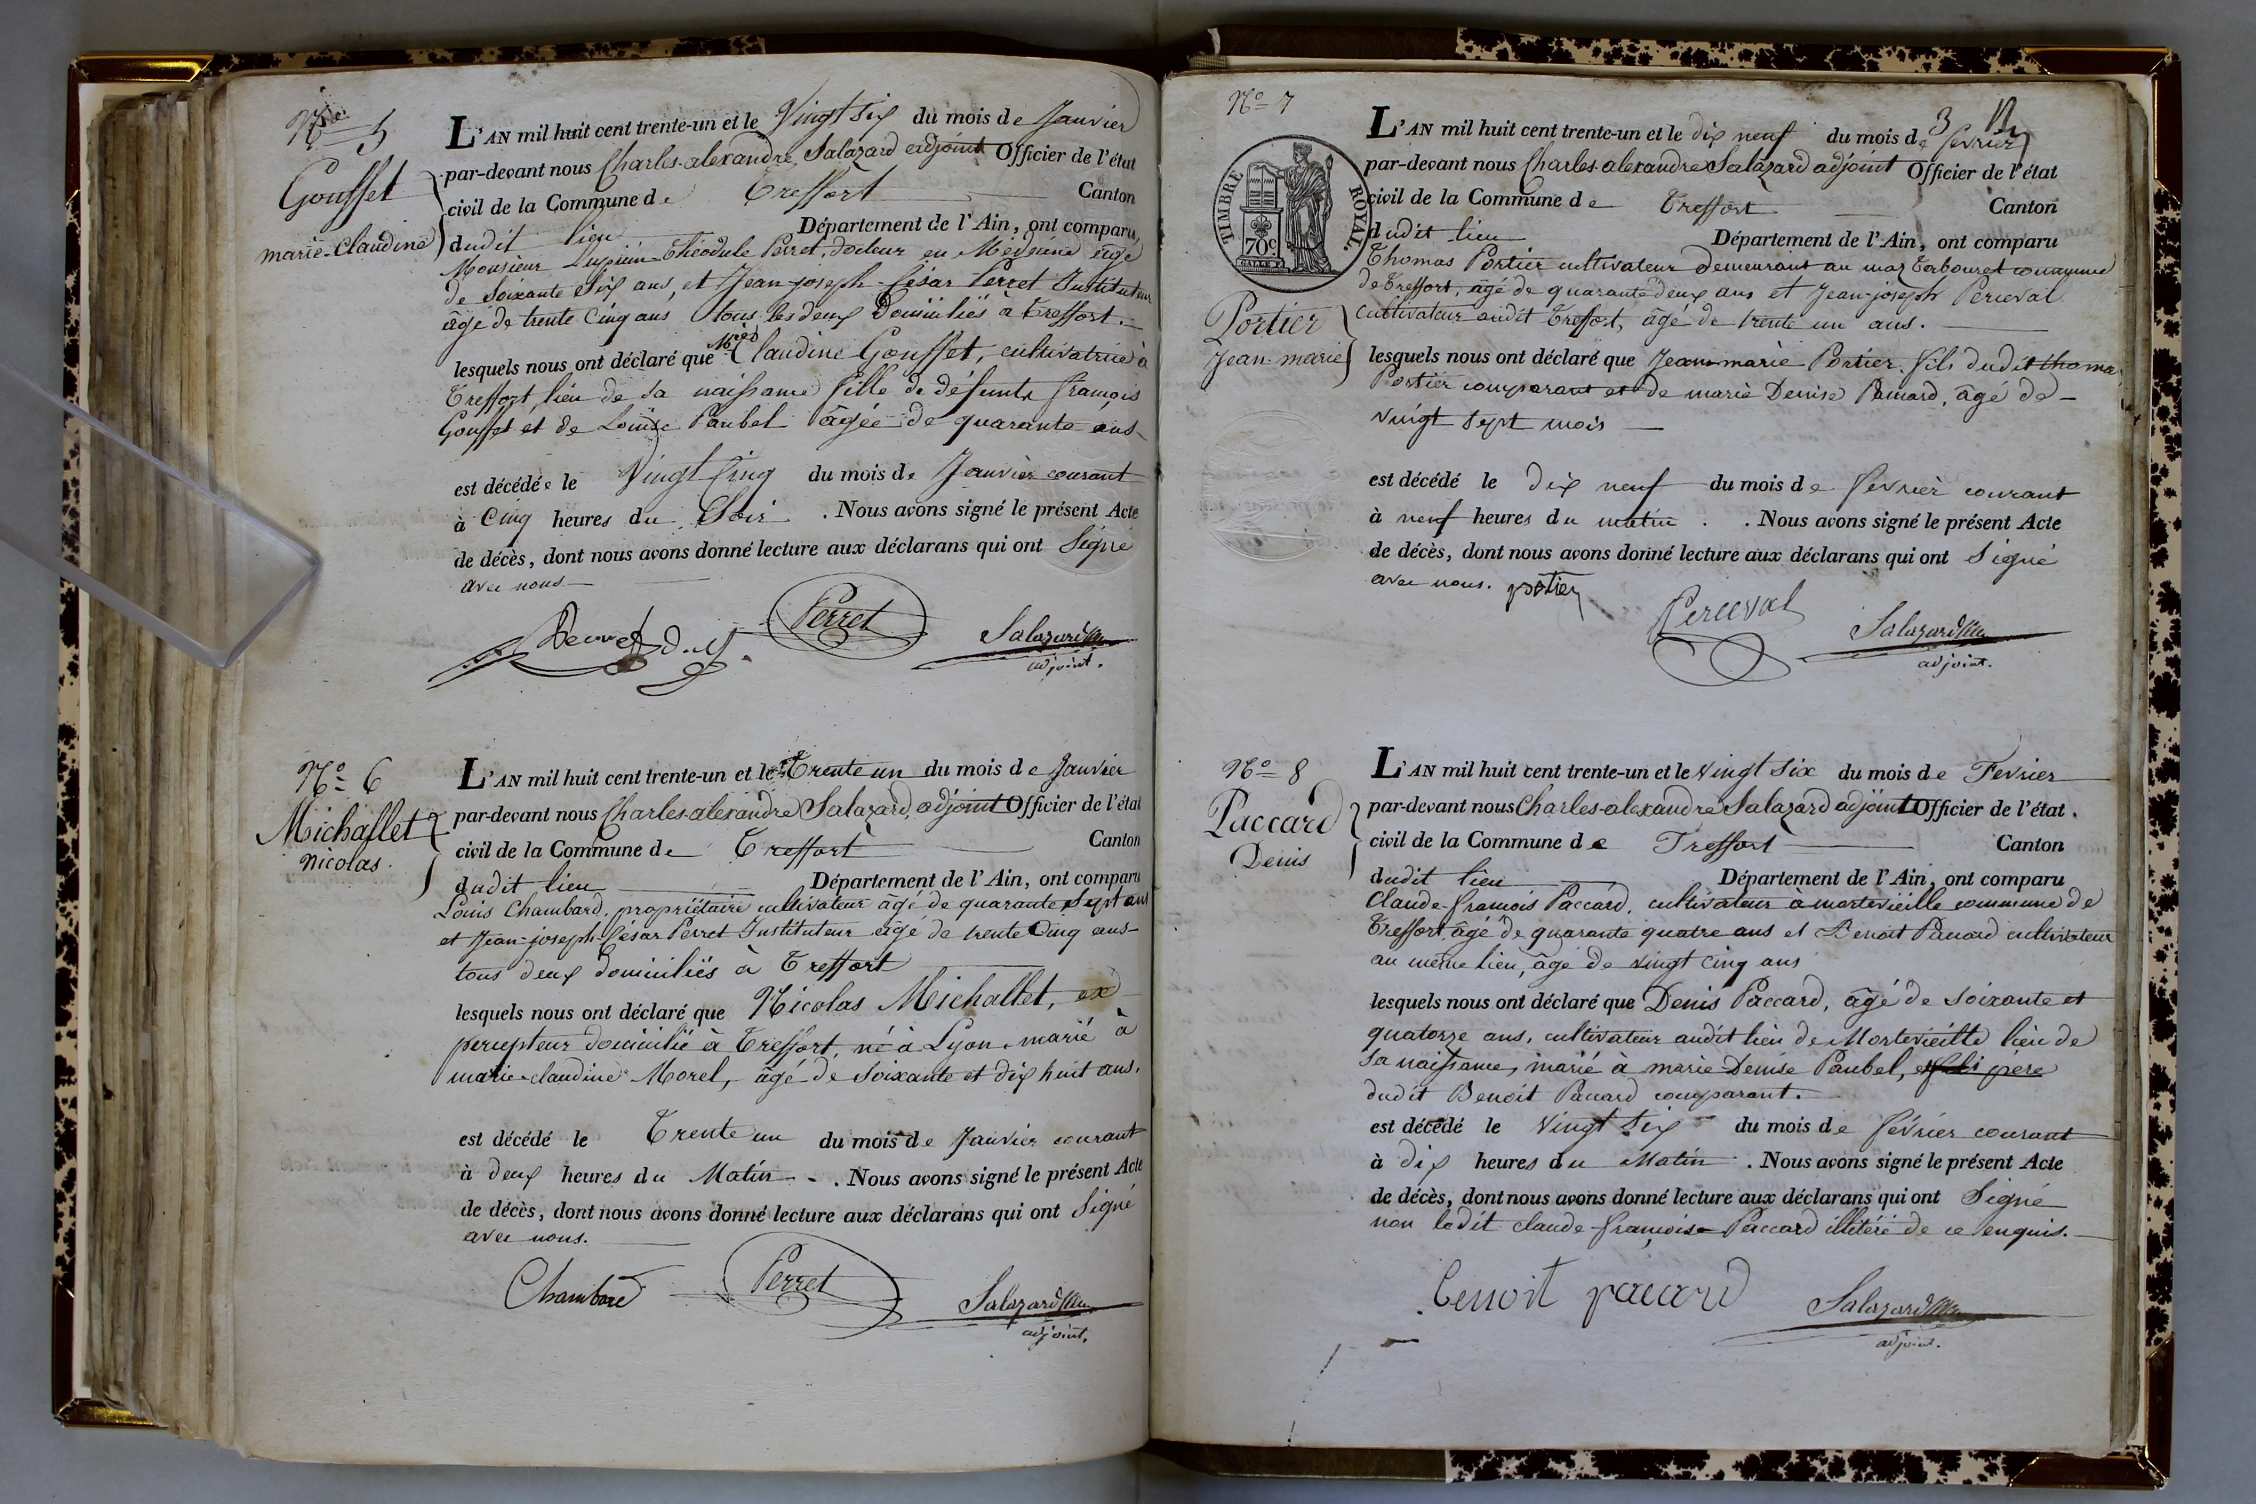 N° 5
Gouffet
marie-Claudine
L'AN mil huit cent trente-un et le Vingt six du mois de Janvier
par-devant nous Charles-alexandre Salazard adjoint Officier de l'état
civil de la Commune de Treffort Canton
dudit lieu Département de l'Ain, ont comparu
Monsieur Théodule Perret, docteur en Medecine âgé
de soixante Six ans, et Jean-joseph-César Perret Instituteur
âgé de trente Cinq ans tous les deux Domiciliés à Treffort.
lesquels nous ont déclaré que Mie Claudine Gouffet, cultivatrice à
Treffort, lieu de sa naissance fille de défunts françois
Gouffet et de Louise Paubel âgée de quarante ans
est décédée le Vingt Cinq du mois de Janvier courant
à Cinq heures du Soir. Nous avons signé le présent Acte
de décès, dont nous avons donné lecture aux déclarans qui ont Signé
avec nous
Perret
Salazard
adjoint.
N° 6
Michallet
nicolas.
L'AN mil huit cent trente-un et le Trente un du mois de Janvier
par-devant nous Charles-alexandre Salazard, adjoint Officier de l'état
civil de la Commune de Treffort Canton
dudit lieu Département de l'Ain, ont comparu
Louis Chambard, propriétaire cultivateur âgé de quarante Sept ans
et Jean-joseph-César Perret Instituteur âgé de trente Cinq ans
tous deux Domiciliés à Treffort
lesquels nous ont déclaré que Nicolas Michallet, ex
percepteur domicilié à Treffort, né à Lyon, marié à
marie-claudine Morel, âgé de soixante et dix huit ans,
est décédé le Trente un du mois de Janvier courant
à deux heures du Matin. Nous avons signé le présent Acte
de décès, dont nous avons donné lecture aux déclarans qui ont Signé
avec nous.
Chambard
Perret
Salazard
adjoint.
3
N° 7
TIMBRE ROYAL.
70c
Portier
Jean-marie
L'AN mil huit cent trente-un et le dix neuf du mois de fevrier
par-devant nous Charles-alexandre Salazard adjoint Officier de l'état
civil de la Commune de Treffort Canton
dudit lieu Département de l'Ain, ont comparu
Thomas Portier cultivateur Demeurant au maz Tabouret commune
de Treffort, âgé de quarante deux ans et Jean-joseph Perceval
cultivateur audit Treffort, âgé de trente un ans.
lesquels nous ont déclaré que Jean-marie Portier fils dudit thomas
Portier comparant et de marie Denise Paccard, âgé de
vingt sept mois
est décédé le dix neuf du mois de fevrier courant
à neuf heures du matin. Nous avons signé le présent Acte
de décès, dont nous avons donné lecture aux déclarans qui ont Signé
avec nous.
portier
Perceval
Salazard
adjoint.
N° 8
Paccard
Denis
L'AN mil huit cent trente-un et le vingt six du mois de Fevrier
par-devant nous Charles-alexandre Salazard adjoint Officier de l'état.
civil de la Commune de Treffort Canton
dudit lieu Département de l'Ain, ont comparu
Claude-françois Paccard, cultivateur à mortevieille commune de
Treffort âgé de quarante quatre ans et Benoit Paccard cultivateur
au même lieu, âgé de vingt cinq ans
lesquels nous ont déclaré que Denis Paccard, âgé de soixante et
quatorze ans, cultivateur audit lieu de Mortevieille lieu de
sa naissance, marié à marie Denise Paubel, père
dudit Benoit Paccard comparant.
est décédé le vingt six du mois de février courant
à dix heures du Matin. Nous avons signé le présent Acte
de décès, dont nous avons donné lecture aux déclarans qui ont Signé
non ledit claude-françois Paccard illitéré de ce enquis.
benoit paccard
Salazard
adjoint.